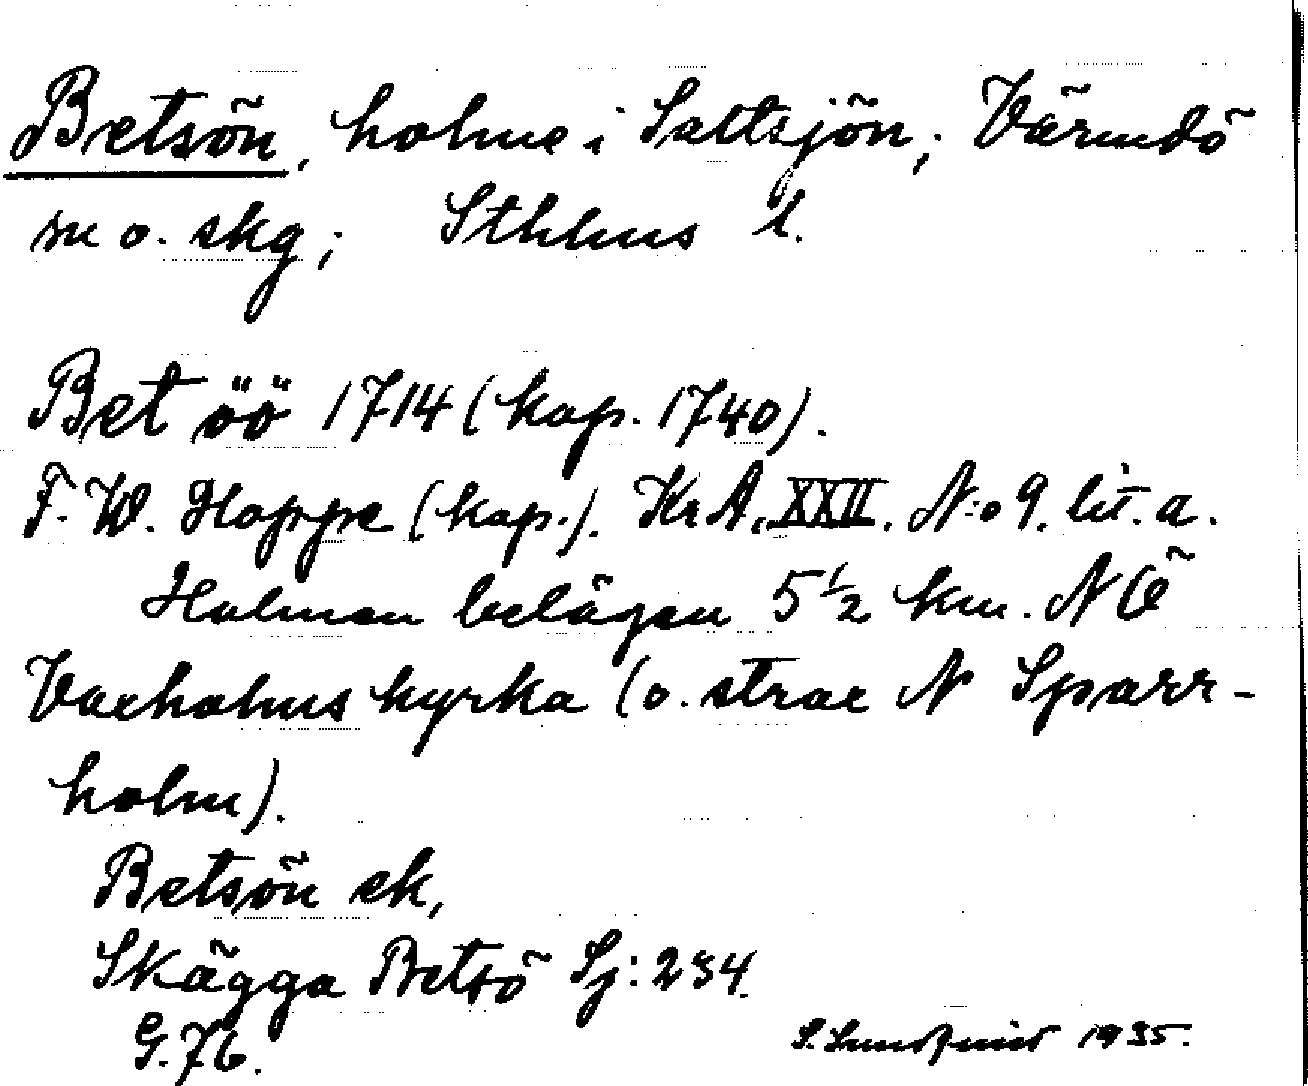 Betsön, holme i Saltsjön; Värmdö
sn o. skg; Sthlms l.
Bet öö 1714 (kop. 1740).
F. W. Hoppe (kop.). KrA. XXII. N:o 9. lit. a.
Holmen belägen 5 1/2 km. NÖ
Vaxholms kyrka (o. strax N Sparr-
holm).
Betsön ek,
Skägga Betsö Sj: 234.
G. 76.
1935.